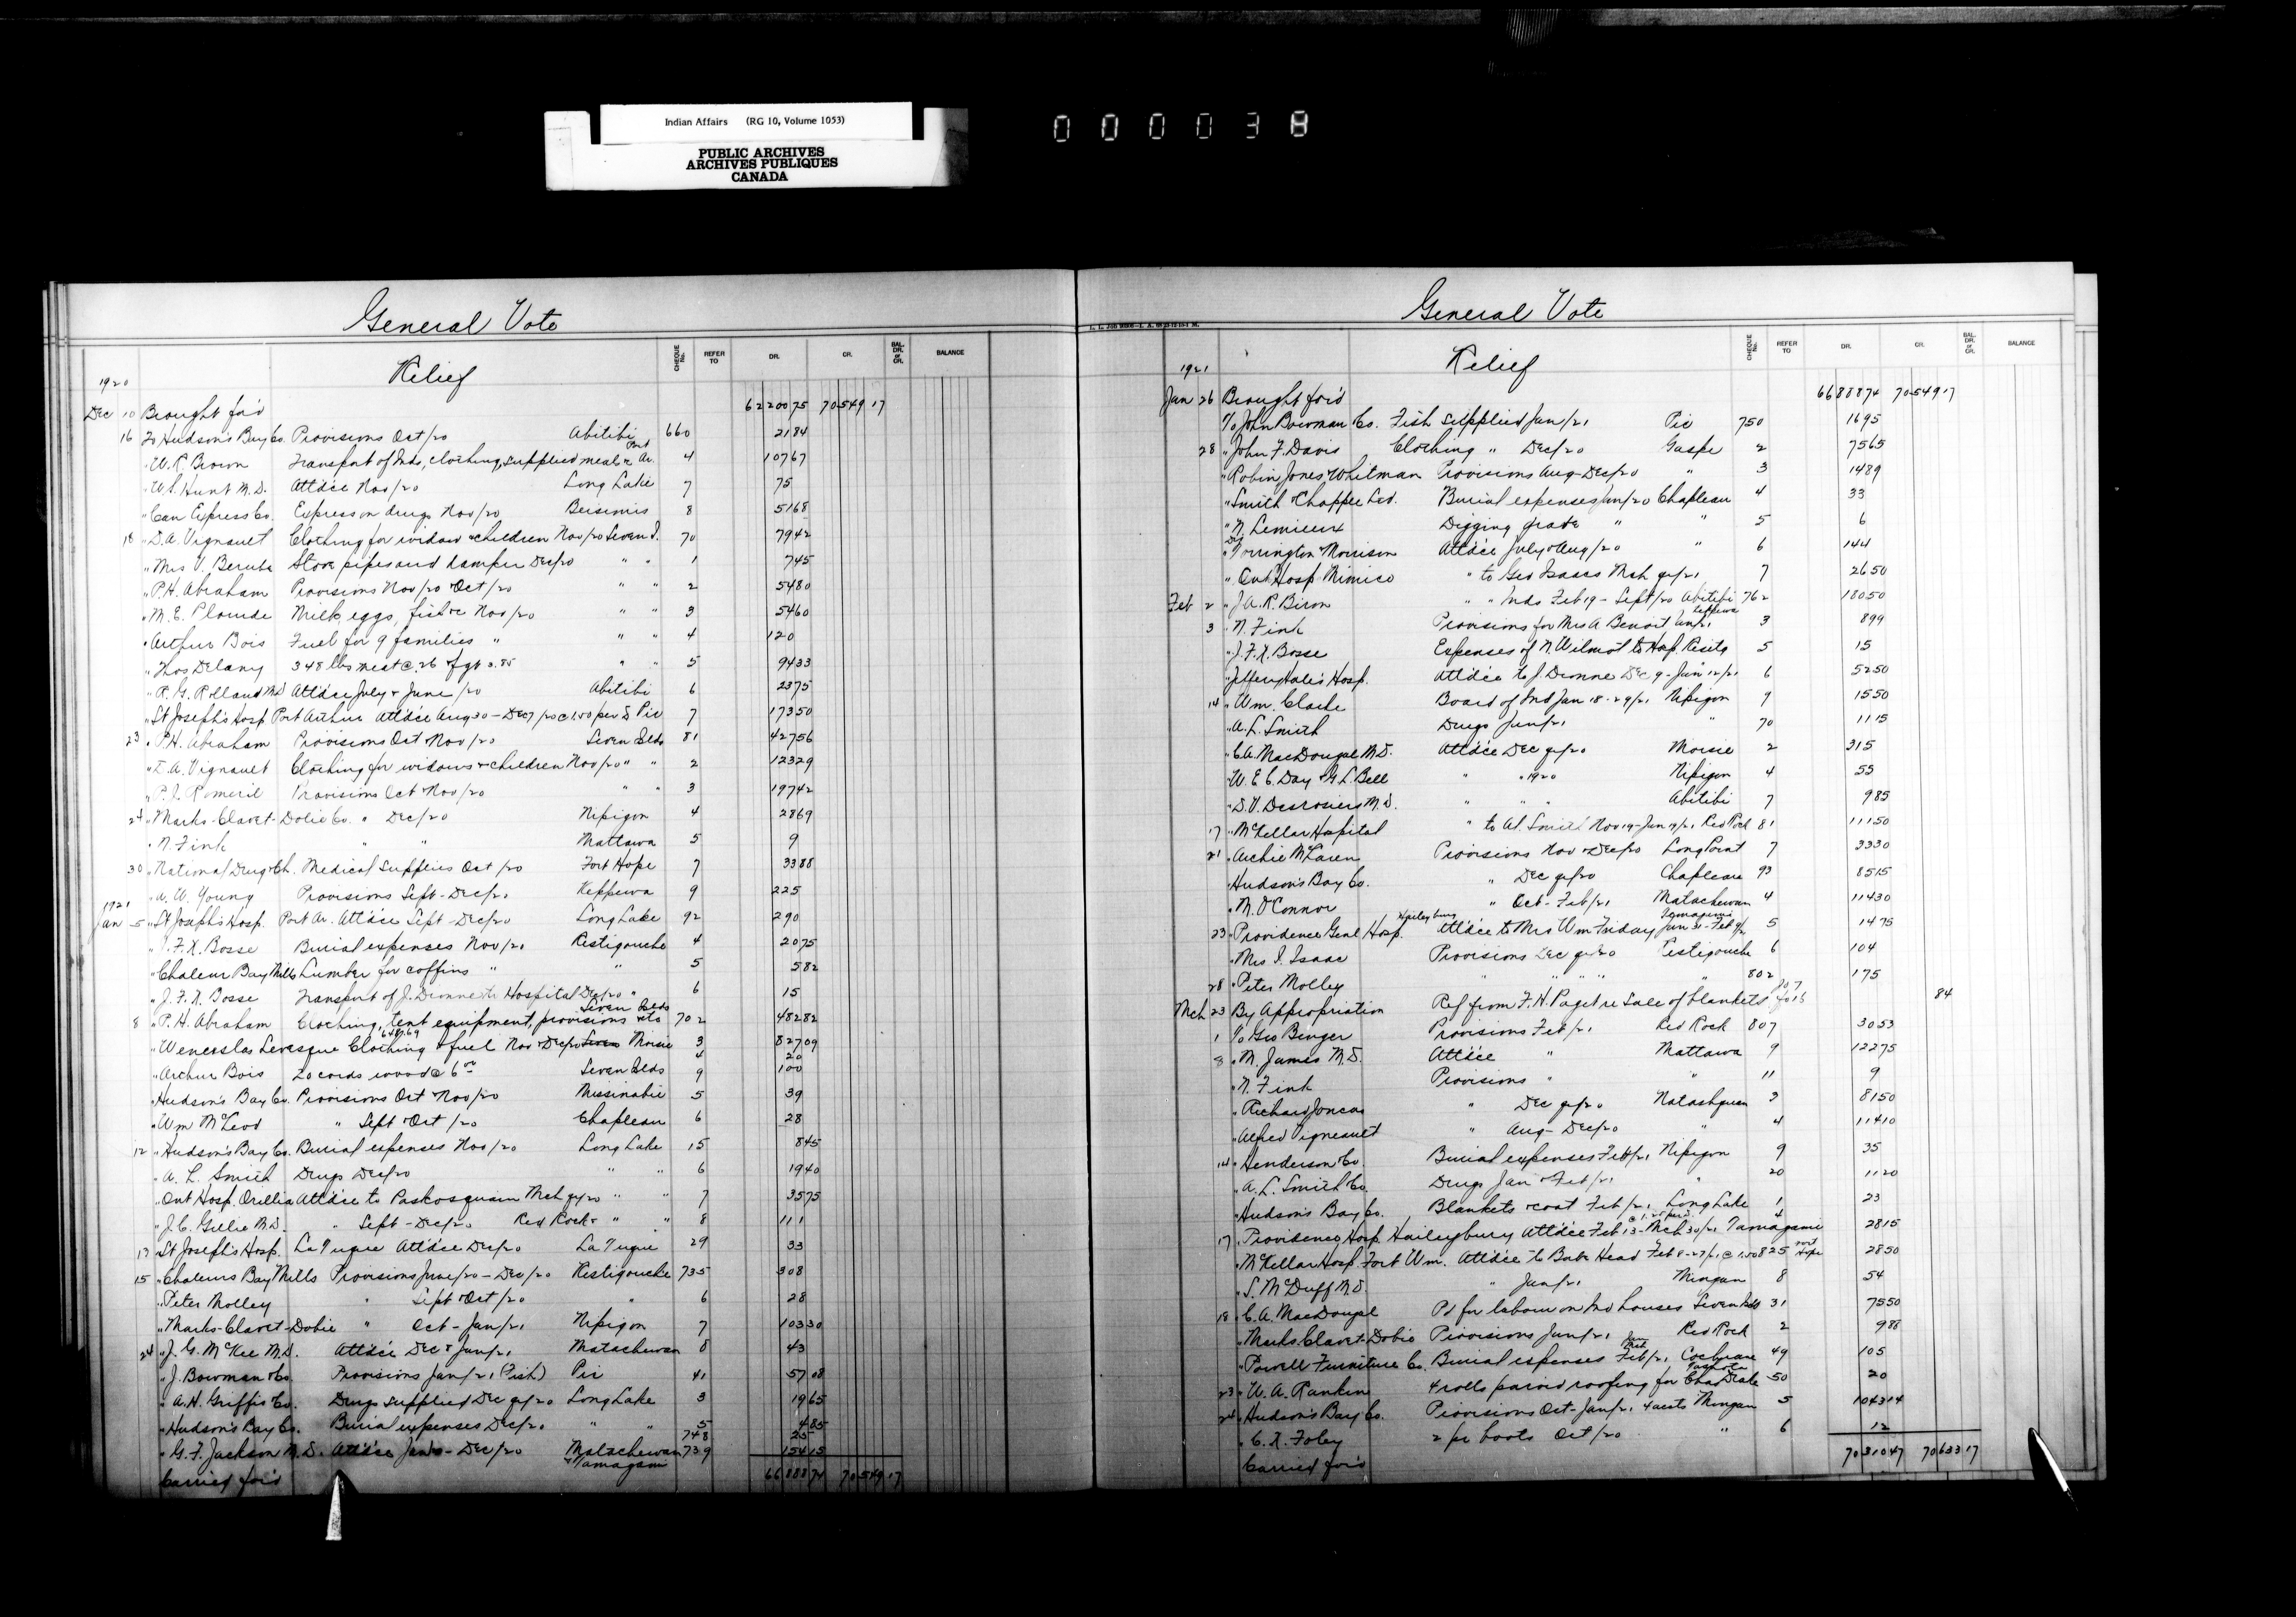 Indian Affairs (RG 10, Volume 1053)
PUBLIC ARCHIVES
ARCHIVES PUBLIQUES
CANADA
000038
General Vote
Relief
CHEQUE No. REFER TO DR. CR. BAL. DR. or CR. BALANCE
1920
Dec 10 Brought for'd 62200 75 70549 17
16 To Hudson's Bay Co. Provisions Oct/20 Abitibi 660 21 84
" W.R. Brown Transport of Inds, clothing, supplied meals &c Port Ar. 4 107 67
" W.S. Hunt M.D. Att'dce Nov/20 Long Lake 7 75
" Can Express Co. Express on drugs Nov/20 Bersimis 8 51 68
18 " D.A. Vignault Clothing for widow & children Nov/20 Seven I. 70 79 42
" Mrs V. Berube Stove pipes and damper Dec/20 " " 1 7 45
" P.H. Abraham Provisions Nov/20 & Oct/20 " " 2 54 80
" M.E. Plourde Milk, eggs, fish &c Nov/20 " " 3 54 60
" Arthur Bois Fuel for 9 families " " " 4 120
" Thos Delany 348 lbs meat @ .26 & fgt 3.85 " " 5 94 33
" R.G. Rolland M.D. Att'dce July & June/20 Abitibi 6 23 75
" St Joseph's Hosp Port Arthur Att'dce Aug 30 - Dec 7/20 @ 1.50 per D Pic 7 173 50
23 " P.H. Abraham Provisions Oct & Nov/20 Seven Ilds 81 427 56
" D.A. Vignault Clothing for widows & children Nov/20 " " 2 123 29
" P.J. Romeril Provisions Oct & Nov/20 " " 3 197 42
24 " Marks-Clavet-Dobie Co. " Dec/20 Nipigon 4 28 69
" N. Fink " " Mattawa 5 9
30 " National Drug & Ch. Medical Supplies Oct/20 Fort Hope 7 33 88
" A.W. Young Provisions Sept - Dec/20 Keppewa 9 225
1921
Jan 5 " St Joseph's Hosp. Port Ar. Att'dce Sept - Dec/20 Long Lake 92 290
" J.F.X. Bosse Burial expenses Nov/21 Restigouche 4 20 75
" Chaleur Bay Mills Lumber for coffins " " 5 5 82
" J.F.X. Bosse Transport of J. Dionne to Hospital Dec/20 " 6 15
8 " P.H. Abraham Clothing, tent equipment, provisions &c Seven Ilds 702 482 82
" Wenceslas Levesque Clothing & fuel Nov & Dec/20 Seven Moisie 3 827 09
4 20
" Arthur Bois 20 cords wood @ 6 00 Seven Ilds 9 100
" Hudson's Bay Co. Provisions Oct & Nov/20 Missinabie 5 39
" Wm McLeod " Sept & Oct/20 Chapleau 6 28
12 " Hudson's Bay Co. Burial expenses Nov/20 Long Lake 15 8 45
" A. L. Smith Drugs Dec/20 " " 6 19 40
" Ont Hosp. Orillia Att'dce to Paskosquain Mch qr/20 " " 7 35 75
" J.C. Gillie M.D. " Sept - Dec/20 Red Rock & " " 8 111
13 " St Joseph's Hosp. La Tuque Att'dce Dec/20 La Tuque 29 33
15 " Chaleurs Bay Mills Provisions June/20 - Dec/20 Restigouche 735 308
" Peter Molley " Sept & Oct/20 " 6 28
" Marks-Clavet-Dobie " Oct - Jan/21 Nipigon 7 103 30
24 " J.G. McKee M.D. Att'dce Dec & Jan/21 Matachewan 8 43
" J. Bowman & Co. Provisions Jan/21 (Fish) Pic 41 57 08
" A.H. Griffis Co. Drugs supplied Dec qr/20 Long Lake 3 19 65
" Hudson's Bay Co. Burial expenses Dec/20 " " 5 4 85
748 25
" G.F. Jackson M.D. Att'dce Jan - Dec/20 Matachewan & Tamagami 739 154 15
Carried for'd 66888 74 70549 17
General Vote
Relief
CHEQUE No. REFER TO DR. CR. BAL. DR. or CR. BALANCE
1921
Jan 26 Brought for'd 66888 74 70549 17
To John Bowman Co. Fish supplied Jan/21 Pic 750 16 95
28 " John F. Davis Clothing " Dec/20 Gaspe 2 75 65
" Robin Jones Whitman Provisions Aug-Dec/20 " 3 14 89
" Smith & Chapple Ltd. Burial expenses Jan/20 Chapleau 4 33
" N. Lemieux Digging grave " " 5 6
" Drs Torrington & Morrison Att'dce July & Aug/20 " 6 144
" Ont Hosp Mimico " to Geo Isaacs Mch qr/21 7 26 50
Feb 2 " J.A.R. Biron " " Inds Feb 19 - Sept/20 Abitibi 762 180 50
3 " N. Fink Provisions for Mrs A Benoit Jan/21 Keppewa 3 8 99
" J.F.X. Bosse Expenses of N. Wilmot to Hosp. Restig 5 15
" Jeffery Hale's Hosp. Att'dce to J. Dionne Dec 9 - Jan 12/21 6 52 50
14 " Wm. Clarke Board of Ind Jan 18-29/21 Nipigon 9 15 50
" A.L. Smith Drugs Jan/21 " 70 11 15
" C.A. MacDougal M.D. Att'dce Dec qr/20 Moisie 2 315
" W.E.C. Day & G.L. Bell " " 1920 Nipigon 4 55
" D.V. Desrosiers M.D. " " " Abitibi 7 9 85
17 " McKellar Hospital " to Al. Smith Nov 19 - Jan 19/21 Red Rock 81 111 50
21 " Archie McLaren Provisions Nov & Dec/20 Long Point 7 33 30
" Hudson's Bay Co. " Dec qr/20 Chapleau 93 85 15
" M. O'Connor " Oct - Feb/21 Matachewan 4 114 30
23 " Providence Genl Hosp. Haileybury Att'dce to Mrs Wm Friday Jan 31 - Feb 9/21 Temagami 5 14 75
" Mrs I. Isaac Provisions Dec qr/20 Restigouche 6 104
28 " Peter Molley " " " " " 802 175
Mch 23 By Appropriation Ref from F.H. Paget re Sale of blankets 84
1 To Geo Binger Provisions Feb/21 Red Rock 807 30 53
8 " M. James M.D. Att'dce " Mattawa 9 122 75
" N. Fink Provisions " " 11 9
" Richard Joncas " Dec qr/20 Natashquan 3 81 50
" Alfred Vigneault " Aug - Dec/20 " 4 114 10
14 " Henderson Co. Burial expenses Feb/21 Nipigon 9 35
" A.L. Smith Co. Drugs Jan & Feb/21 " 20 11 20
" Hudson's Bay Co. Blankets & coat Feb/21 Long Lake 1 23
17 " Providence Hosp. Haileybury Att'dce Feb 13 - Mch 30/21 Tamagami 4 28 15
" McKellar Hosp. Fort Wm. Att'dce to Baba Head Feb 8-27/21 @ 1.50 825 Fort Hope 28 50
" S. McDuff M.D. " Jan/21 Mingan 8 54
18 " C.A. MacDougal Pd for labour on Ind houses Seven Ilds 31 75 50
" Marks Clavet-Dobie Provisions Jan/21 Red Rock 2 9 88
" Powell Furniture Co. Burial expenses Feb/21 Cochrane 49 105
23 " W.A. Rankin 4 rolls paroid roofing for Chas Drake 50 20
24 " Hudson's Bay Co. Provisions Oct - Jan/21 4 accts Mingan 5 1043 14
" C.X. Foley 2 pr boots Oct/20 " 6 12
Carried for'd 70310 47 70633 17